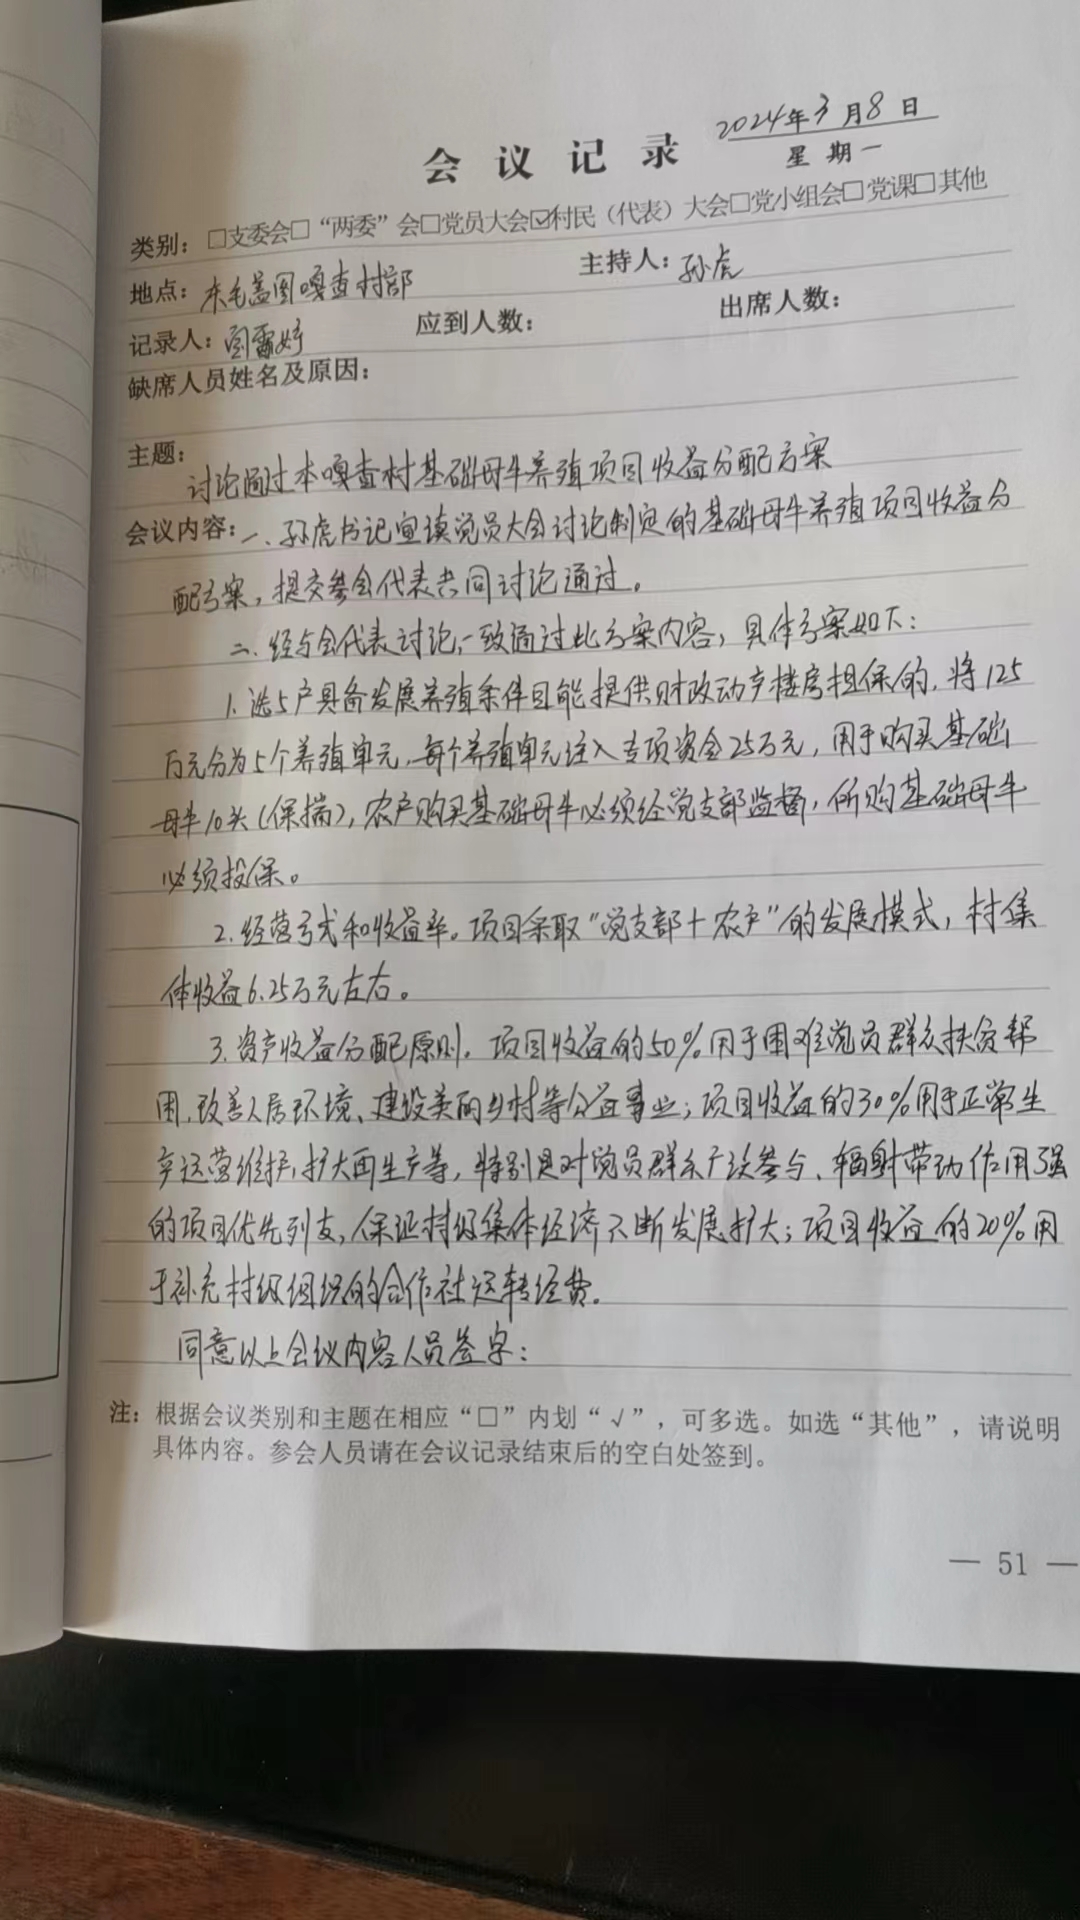 2024年3月8日
会议记录
星期一
类别：□支委会□“两委”会□党员大会☑村民（代表）大会□党小组会□党课□其他
地点：东毛盖图嘎查村部 主持人：孙虎
记录人：闫雷婷 应到人数： 出席人数：
缺席人员姓名及原因：
主题：
讨论通过本嘎查村基础母牛养殖项目收益分配方案
会议内容：一、孙虎书记宣读党员大会讨论制定的基础母牛养殖项目收益分
配方案，提交参会代表共同讨论通过。
二、经与会代表讨论，一致通过此方案内容，具体方案如下：
1.选5户具备发展养殖条件且能提供财政动产楼房担保的，将125
万元分为5个养殖单元，每个养殖单元注入专项资金25万元，用于购买基础
母牛10头（保揣），农户购买基础母牛必须经党支部监督，所购基础母牛
必须投保。
2.经营方式和收益率。项目采取“党支部+农户”的发展模式，村集
体收益6.25万元左右。
3.资产收益分配原则。项目收益的50%用于困难党员群众扶贫帮
困，改善人居环境、建设美丽乡村等公益事业；项目收益的30%用于正常生
产运营维护，扩大再生产等，特别是对党员群众广泛参与、辐射带动作用强
的项目优先列支，保证村级集体经济不断发展扩大；项目收益的20%用
于补充村级组织的合作社运转经费。
同意以上会议内容人员签字：
注：根据会议类别和主题在相应“□”内划“√”，可多选。如选“其他”，请说明
具体内容。参会人员请在会议记录结束后的空白处签到。
— 51 —